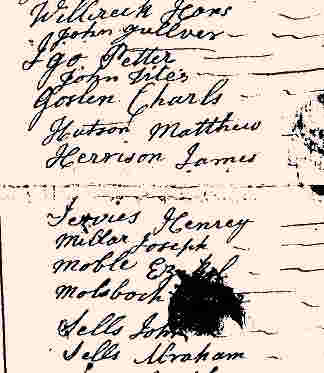 Willireck Hans
John gullver
Igo Petter
John Iles
Goslen Charls
Hutson Matthew
Herrison James
Jervies Henrey
Millar Joseph
Moble
Molsboch
Sells John
Sells Abraham